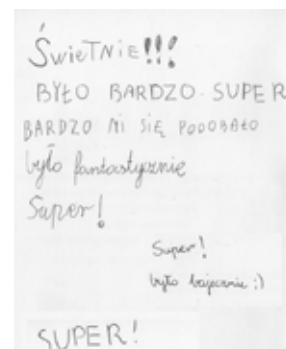 ŚwieTNiE!!!
BYŁO BARDZO SUPER
BARDZO MI SIĘ PODOBAŁO
było fantastycznie
Super!
Super!
było bajecznie :)
SUPER!